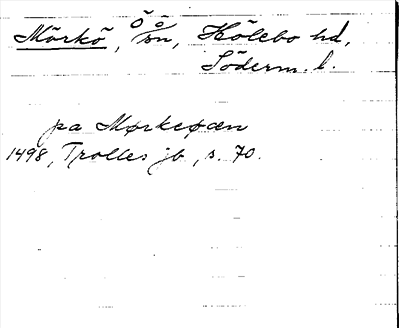 Mörkö, Ö o sn, Hölebo hd,
Söderm. l.
pa Mørkeøæn
1498, Trolles jb, s. 70.